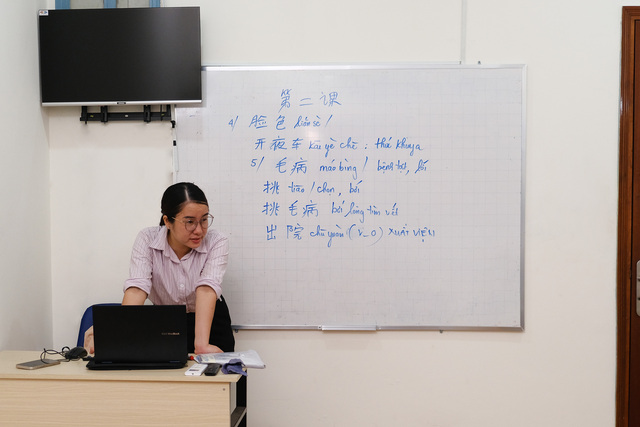 第二课
4/ 脸色 liǎn sè /
开夜车 kāi yè chē : thức khuya
5/ 毛病 máo bìng / bệnh tật, lỗi
挑 tiāo / chọn, bới
挑毛病 bới lông tìm vết
出院 chū yuàn (V_O) XUẤT VIỆN